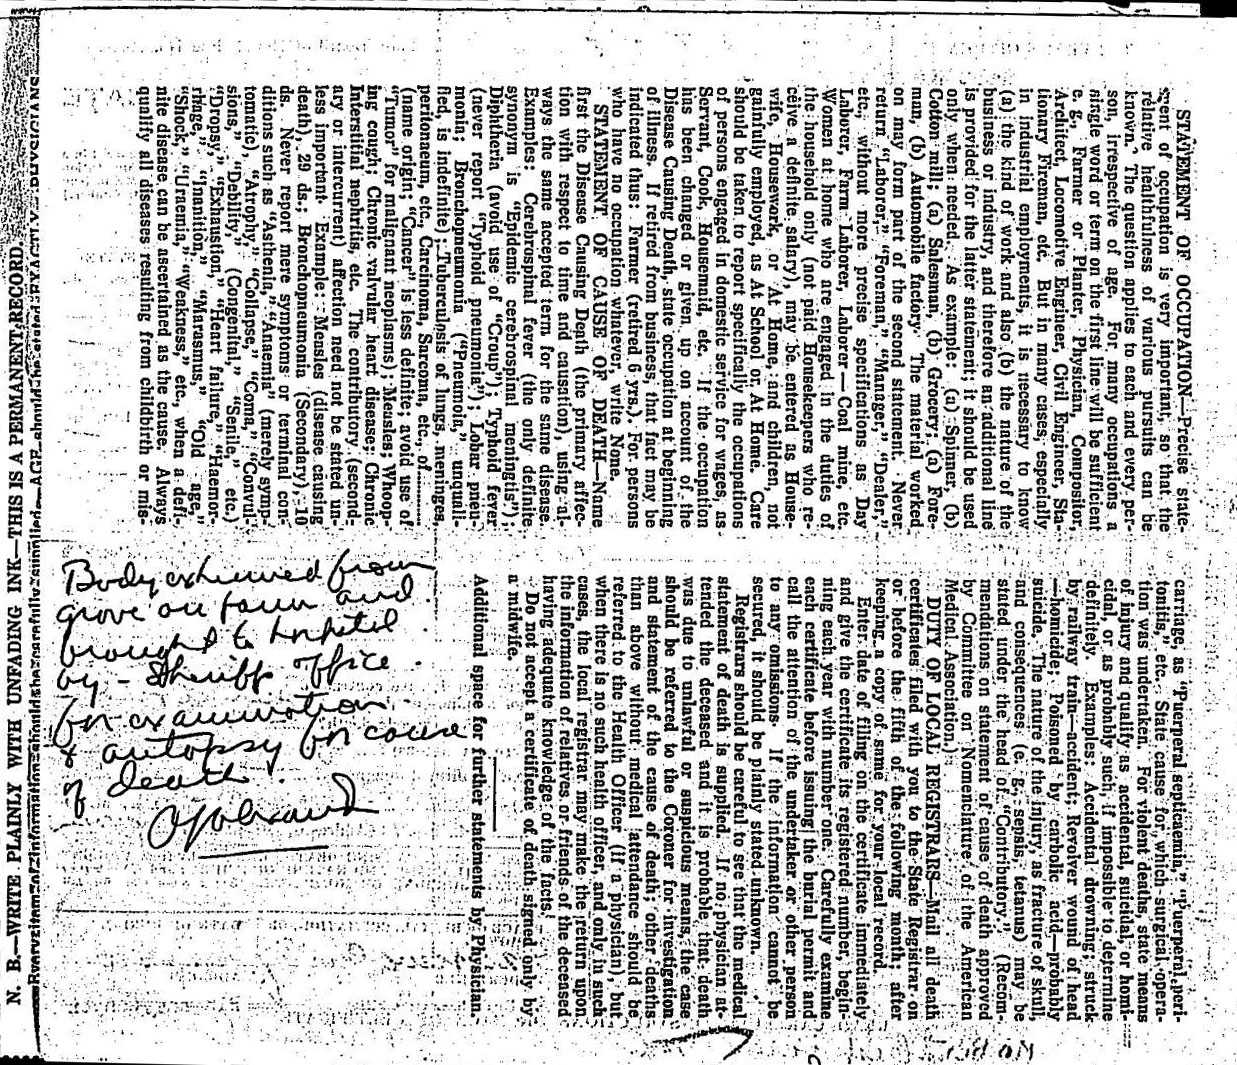 STATEMENT OF OCCUPATION—Precise state-
ment of occupation is very important, so that the
relative healthfulness of various pursuits can be
known. The question applies to each and every per-
son, irrespective of age. For many occupations a
single word or term on the first line will be sufficient
e. g., Farmer or Planter, Physician, Compositor,
Architect, Locomotive Engineer, Civil Engineer, Sta-
tionary Fireman, etc. But in many cases, especially
in industrial employments, it is necessary to know
(a) the kind of work and also (b) the nature of the
business or industry, and therefore an additional line
is provided for the latter statement; it should be used
only when needed. As example: (a) Spinner, (b)
Cotton mill; (a) Salesman, (b) Grocery; (a) Fore-
man, (b) Automobile factory. The material worked
on may form part of the second statement. Never
return "Laborer," "Foreman," "Manager," "Dealer,"
etc., without more precise specifications as Day
Laborer, Farm Laborer, Laborer—Coal mine, etc.
Women at home who are engaged in the duties of
the household only (not paid Housekeepers who re-
ceive a definite salary), may be entered as House-
wife, Housework, or At Home, and children, not
gainfully employed, as At School or At Home. Care
should be taken to report specifically the occupations
of persons engaged in domestic service for wages, as
Servant, Cook, Housemaid, etc. If the occupation
has been changed or given up on account of the
Disease Causing Death, state occupation at beginning
of illness. If retired from business, that fact may be
indicated thus: Farmer (retired 6 yrs.). For persons
who have no occupation whatever, write None.
STATEMENT OF CAUSE OF DEATH—Name
first the Disease Causing Death (the primary affec-
tion with respect to time and causation), using al-
ways the same accepted term for the same disease.
Examples: Cerebrospinal fever (the only definite
synonym is "Epidemic cerebrospinal meningitis");
Diphtheria (avoid use of "Croup"); Typhoid fever
(never report "Typhoid pneumonia"); Lobar pneu-
monia; Bronchopneumonia ("Pneumonia," unquali-
fied, is indefinite); Tuberculosis of lungs, meninges,
peritonaeum, etc., Carcinoma, Sarcoma, etc., of
(name origin; "Cancer" is less definite; avoid use of
"Tumor" for malignant neoplasms); Measles; Whoop-
ing cough; Chronic valvular heart disease; Chronic
Interstitial nephritis, etc. The contributory (second-
ary or intercurrent) affection need not be stated un-
less important. Example: Measles (disease causing
death), 29 ds.; Bronchopneumonia (Secondary), 10
ds. Never report mere symptoms or terminal con-
ditions such as "Asthenia," "Anaemia" (merely symp-
tomatic), "Atrophy," "Collapse," "Coma," "Convul-
sions," "Debility," (Congenital," "Senile," etc.)
"Dropsy," "Exhaustion," "Heart failure," "Haemor-
rhage," "Inanition," "Marasmus," "Old age,"
"Shock," "Uraemia," "Weakness," etc., when a defi-
nite disease can be ascertained as the cause. Always
qualify all diseases resulting from childbirth or mis-
carriage, as "Puerperal septicaemia," "Puerperal peri-
tonitis," etc. State cause for which surgical opera-
tion was undertaken. For violent deaths, state means
of injury and qualify as accidental, suicidal, or homi-
cidal, or as probably such, if impossible to determine
definitely. Examples: Accidental drowning; struck
by railway train—accident; Revolver wound of head
—homicide; Poisoned by carbolic acid—probably
suicide. The nature of the injury, as fracture of skull,
and consequences (e. g., sepsis, tetanus) may be
stated under the head of "Contributory." (Recom-
mendations on statement of cause of death approved
by Committee on Nomenclature of the American
Medical Association.)
DUTY OF LOCAL REGISTRARS—Mail all death
certificates filed with you to the State Registrar on
or before the fifth of the following month; after
keeping a copy of same for your local record.
Enter date of filing on the certificate immediately
and give the certificate its registered number, begin-
ning each year with number one. Carefully examine
each certificate before issuing the burial permit and
call the attention of the undertaker or other person
to any omissions. If the information cannot be
secured, it should be plainly stated unknown.
Registrars should be careful to see that the medical
statement of death is supplied. If no physician at-
tended the deceased and it is probable that death
was due to unlawful or suspicious means, the case
should be referred to the Coroner for investigation
and statement of the cause of death; other deaths
than above without medical attendance should be
referred to the Health Officer (if a physician), but
when there is no such health officer, and only in such
cases, the local registrar may make the return upon
the information of relatives or friends of the deceased
having adequate knowledge of the facts.
Do not accept a certificate of death signed only by
a midwife.
Additional space for further statements by Physician.
Body exhumed from
grove on farm and
brought to hospital
by - Sheriff office
for examination
& autopsy for cause
of death.
N. B.—WRITE PLAINLY WITH UNFADING INK—THIS IS A PERMANENT RECORD